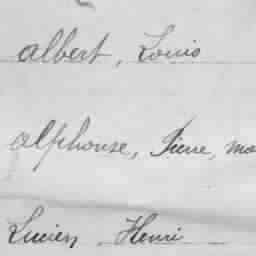 albert, Louis
alphonse, Pierre, ma
Lucien Henri